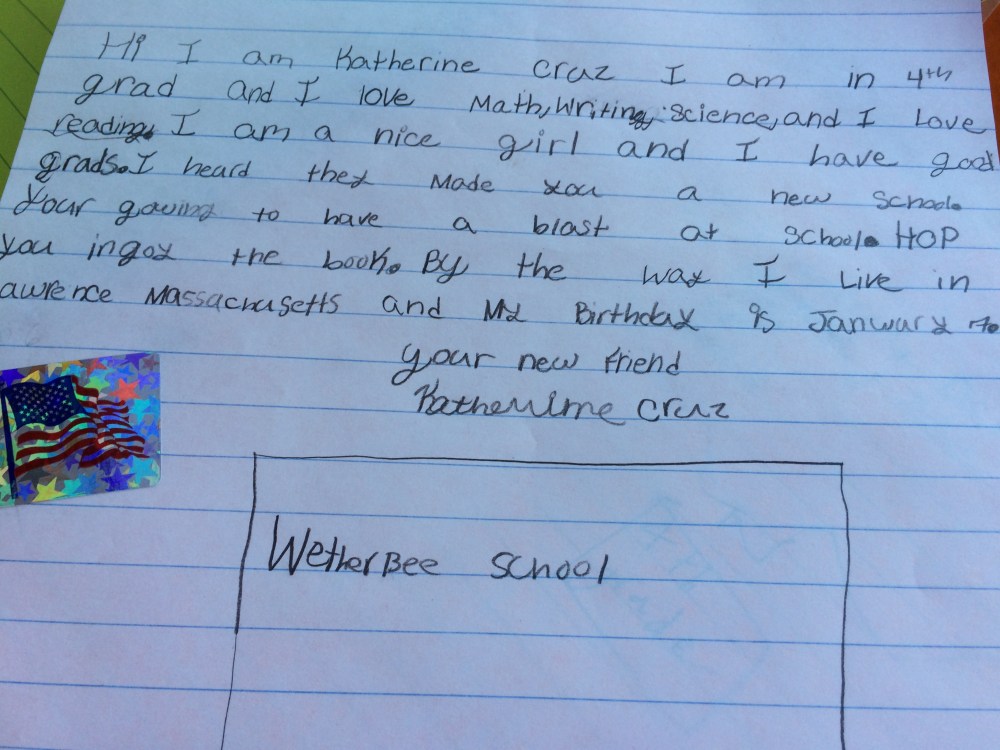 Hi I am Katherine Cruz I am in 4th
grad and I love Math, Writing, Science, and I Love
reading. I am a nice girl and I have good
grads. I heard they Made you a new School.
Your gouing to have a blast at School. HOP
you ingoy the book. By the way I Live in
awrence Massachusetts and My Birthday is Januwary
your new friend
Katherine Cruz
WetherBee School